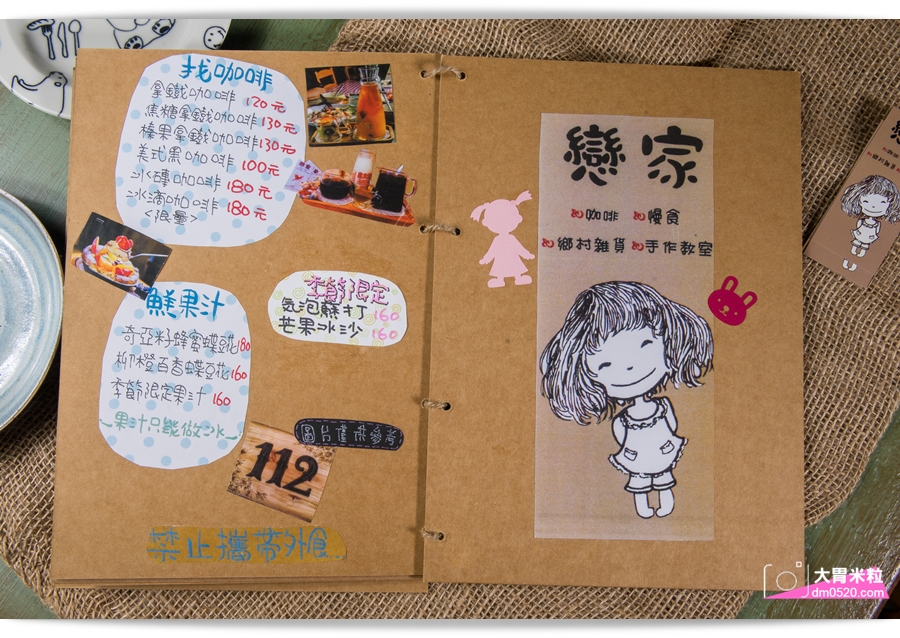 找咖啡
拿鐵咖啡 120元
焦糖拿鐵咖啡 130元
榛果拿鐵咖啡 130元
美式黑咖啡 100元
冰磚咖啡 180元
冰滴咖啡 180元
<限量>
鮮果汁
奇亞籽蜂蜜蝶豆花 180
柳橙百香蝶豆花 160
季節限定果汁 160
~果汁只能做冰~
季節限定
氣泡蘇打 160
芒果冰沙 160
圖片僅供參考
112
禁止攜帶外食
戀家
咖啡 慢食
鄉村雜貨 手作教室
大胃米粒
dm0520.com